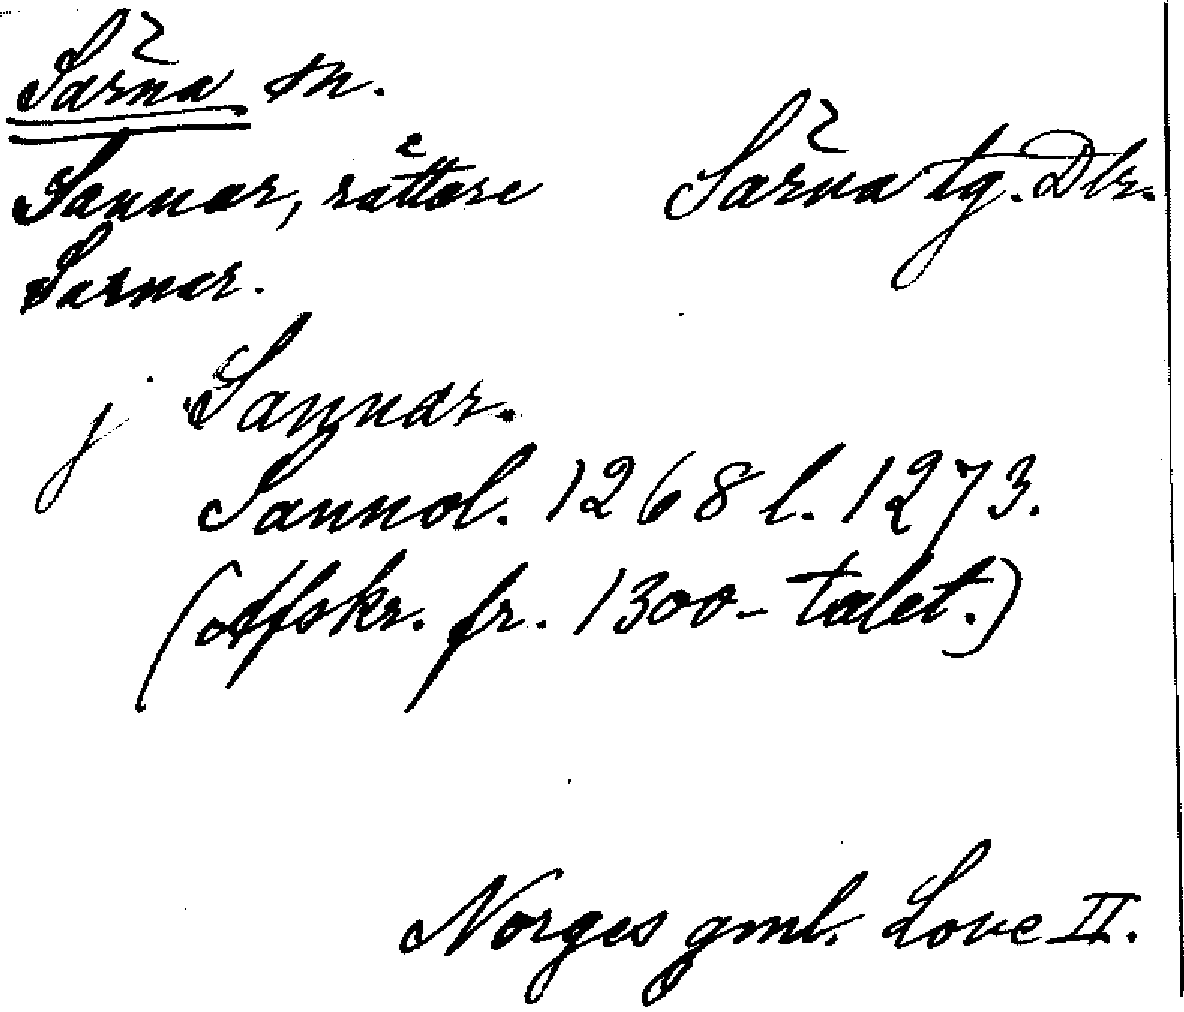 Särna sn.
Sannar, rättare
Särna tg. Dlr.
Sarnar.
j Sannar.
Sannol. 1268 l. 1273.
(Afskr. fr. 1300-talet.)
Norges gml. Love II.